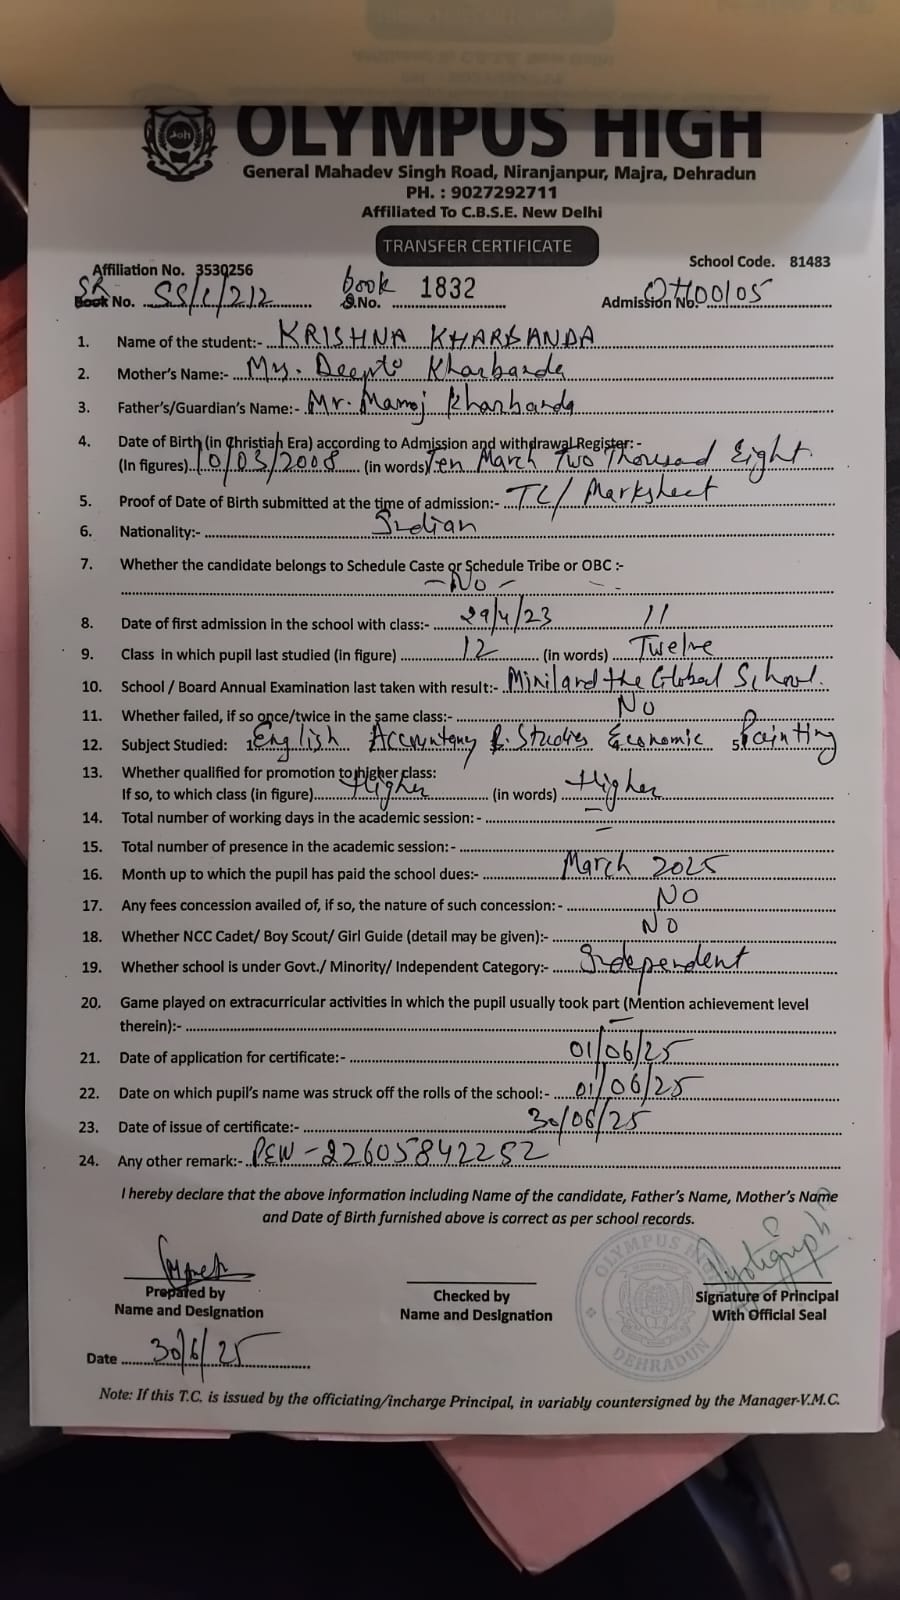 OLYMPUS HIGH
General Mahadev Singh Road, Niranjanpur, Majra, Dehradun
PH. : 9027292711
Affiliated To C.B.S.E. New Delhi
TRANSFER CERTIFICATE
Affiliation No. 3530256 School Code. 81483
SR Book No. SS/C/212 book S.No. 1832 Admission No. 0H00/05
1. Name of the student:- KRISHNA KHARBANDA
2. Mother's Name:- Mrs. Deepto Kharbanda
3. Father's/Guardian's Name:- Mr. Manoj Kharbanda
4. Date of Birth (in Christiah Era) according to Admission and withdrawal Register: -
(In figures) 10/03/2008 (in words) Ten March Two Thousand Eight.
5. Proof of Date of Birth submitted at the time of admission:- TC/ Marksheet
6. Nationality:- Indian
7. Whether the candidate belongs to Schedule Caste or Schedule Tribe or OBC :-
- No -
8. Date of first admission in the school with class:- 29/4/23 11
9. Class in which pupil last studied (in figure) 12 (in words) Twelve
10. School / Board Annual Examination last taken with result:- Miniland the Global School.
11. Whether failed, if so once/twice in the same class:- No
12. Subject Studied: 1. English Accountany B. Studies Economic 5. Painting
13. Whether qualified for promotion to higher class:
If so, to which class (in figure) Higher (in words) Higher
14. Total number of working days in the academic session: - –
15. Total number of presence in the academic session: - –
16. Month up to which the pupil has paid the school dues:- March 2025
17. Any fees concession availed of, if so, the nature of such concession: - NO
18. Whether NCC Cadet/ Boy Scout/ Girl Guide (detail may be given):- NO
19. Whether school is under Govt./ Minority/ Independent Category:- Independent
20. Game played on extracurricular activities in which the pupil usually took part (Mention achievement level
therein):- –
21. Date of application for certificate:- 01/06/25
22. Date on which pupil's name was struck off the rolls of the school:- 01/06/25
23. Date of issue of certificate:- 30/06/25
24. Any other remark:- PEN - 22605842252
I hereby declare that the above information including Name of the candidate, Father's Name, Mother's Name
and Date of Birth furnished above is correct as per school records.
OLYMPUS
DEHRADUN
Prepared by
Name and Designation
Checked by
Name and Designation
Signature of Principal
With Official Seal
Date 30/6/25
Note: If this T.C. is issued by the officiating/incharge Principal, in variably countersigned by the Manager-V.M.C.